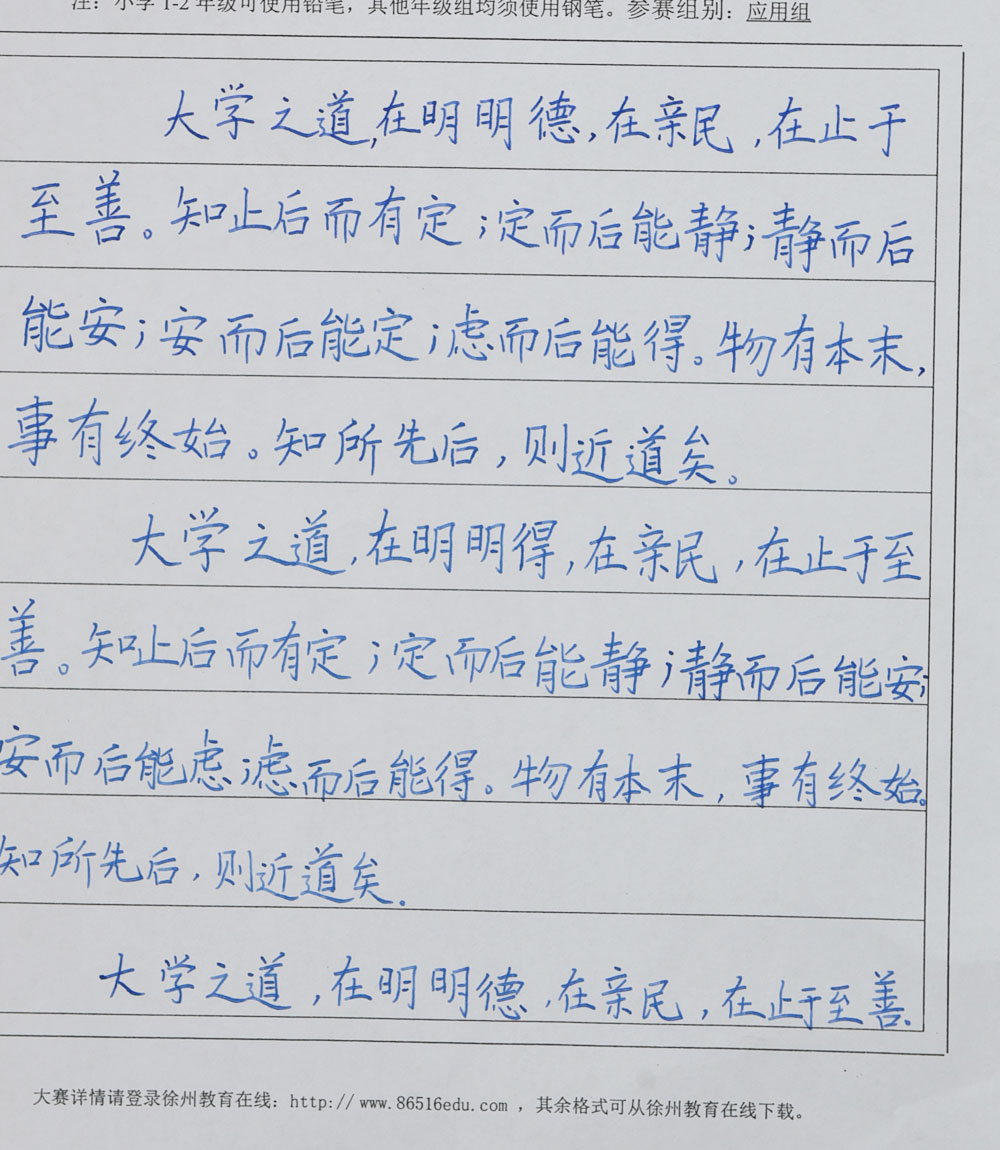 注：小学1-2年级可使用铅笔，其他年级组均须使用钢笔。参赛组别：应用组
大学之道,在明明德,在亲民,在止于
至善。知止后而有定;定而后能静;静而后
能安;安而后能定;虑而后能得。物有本末,
事有终始。知所先后,则近道矣。
大学之道,在明明得,在亲民,在止于至
善。知止后而有定;定而后能静;静而后能安;
安而后能虑;虑而后能得。物有本末,事有终始。
知所先后,则近道矣.
大学之道,在明明德,在亲民,在止于至善.
大赛详情请登录徐州教育在线：http://www.86516edu.com ，其余格式可从徐州教育在线下载。